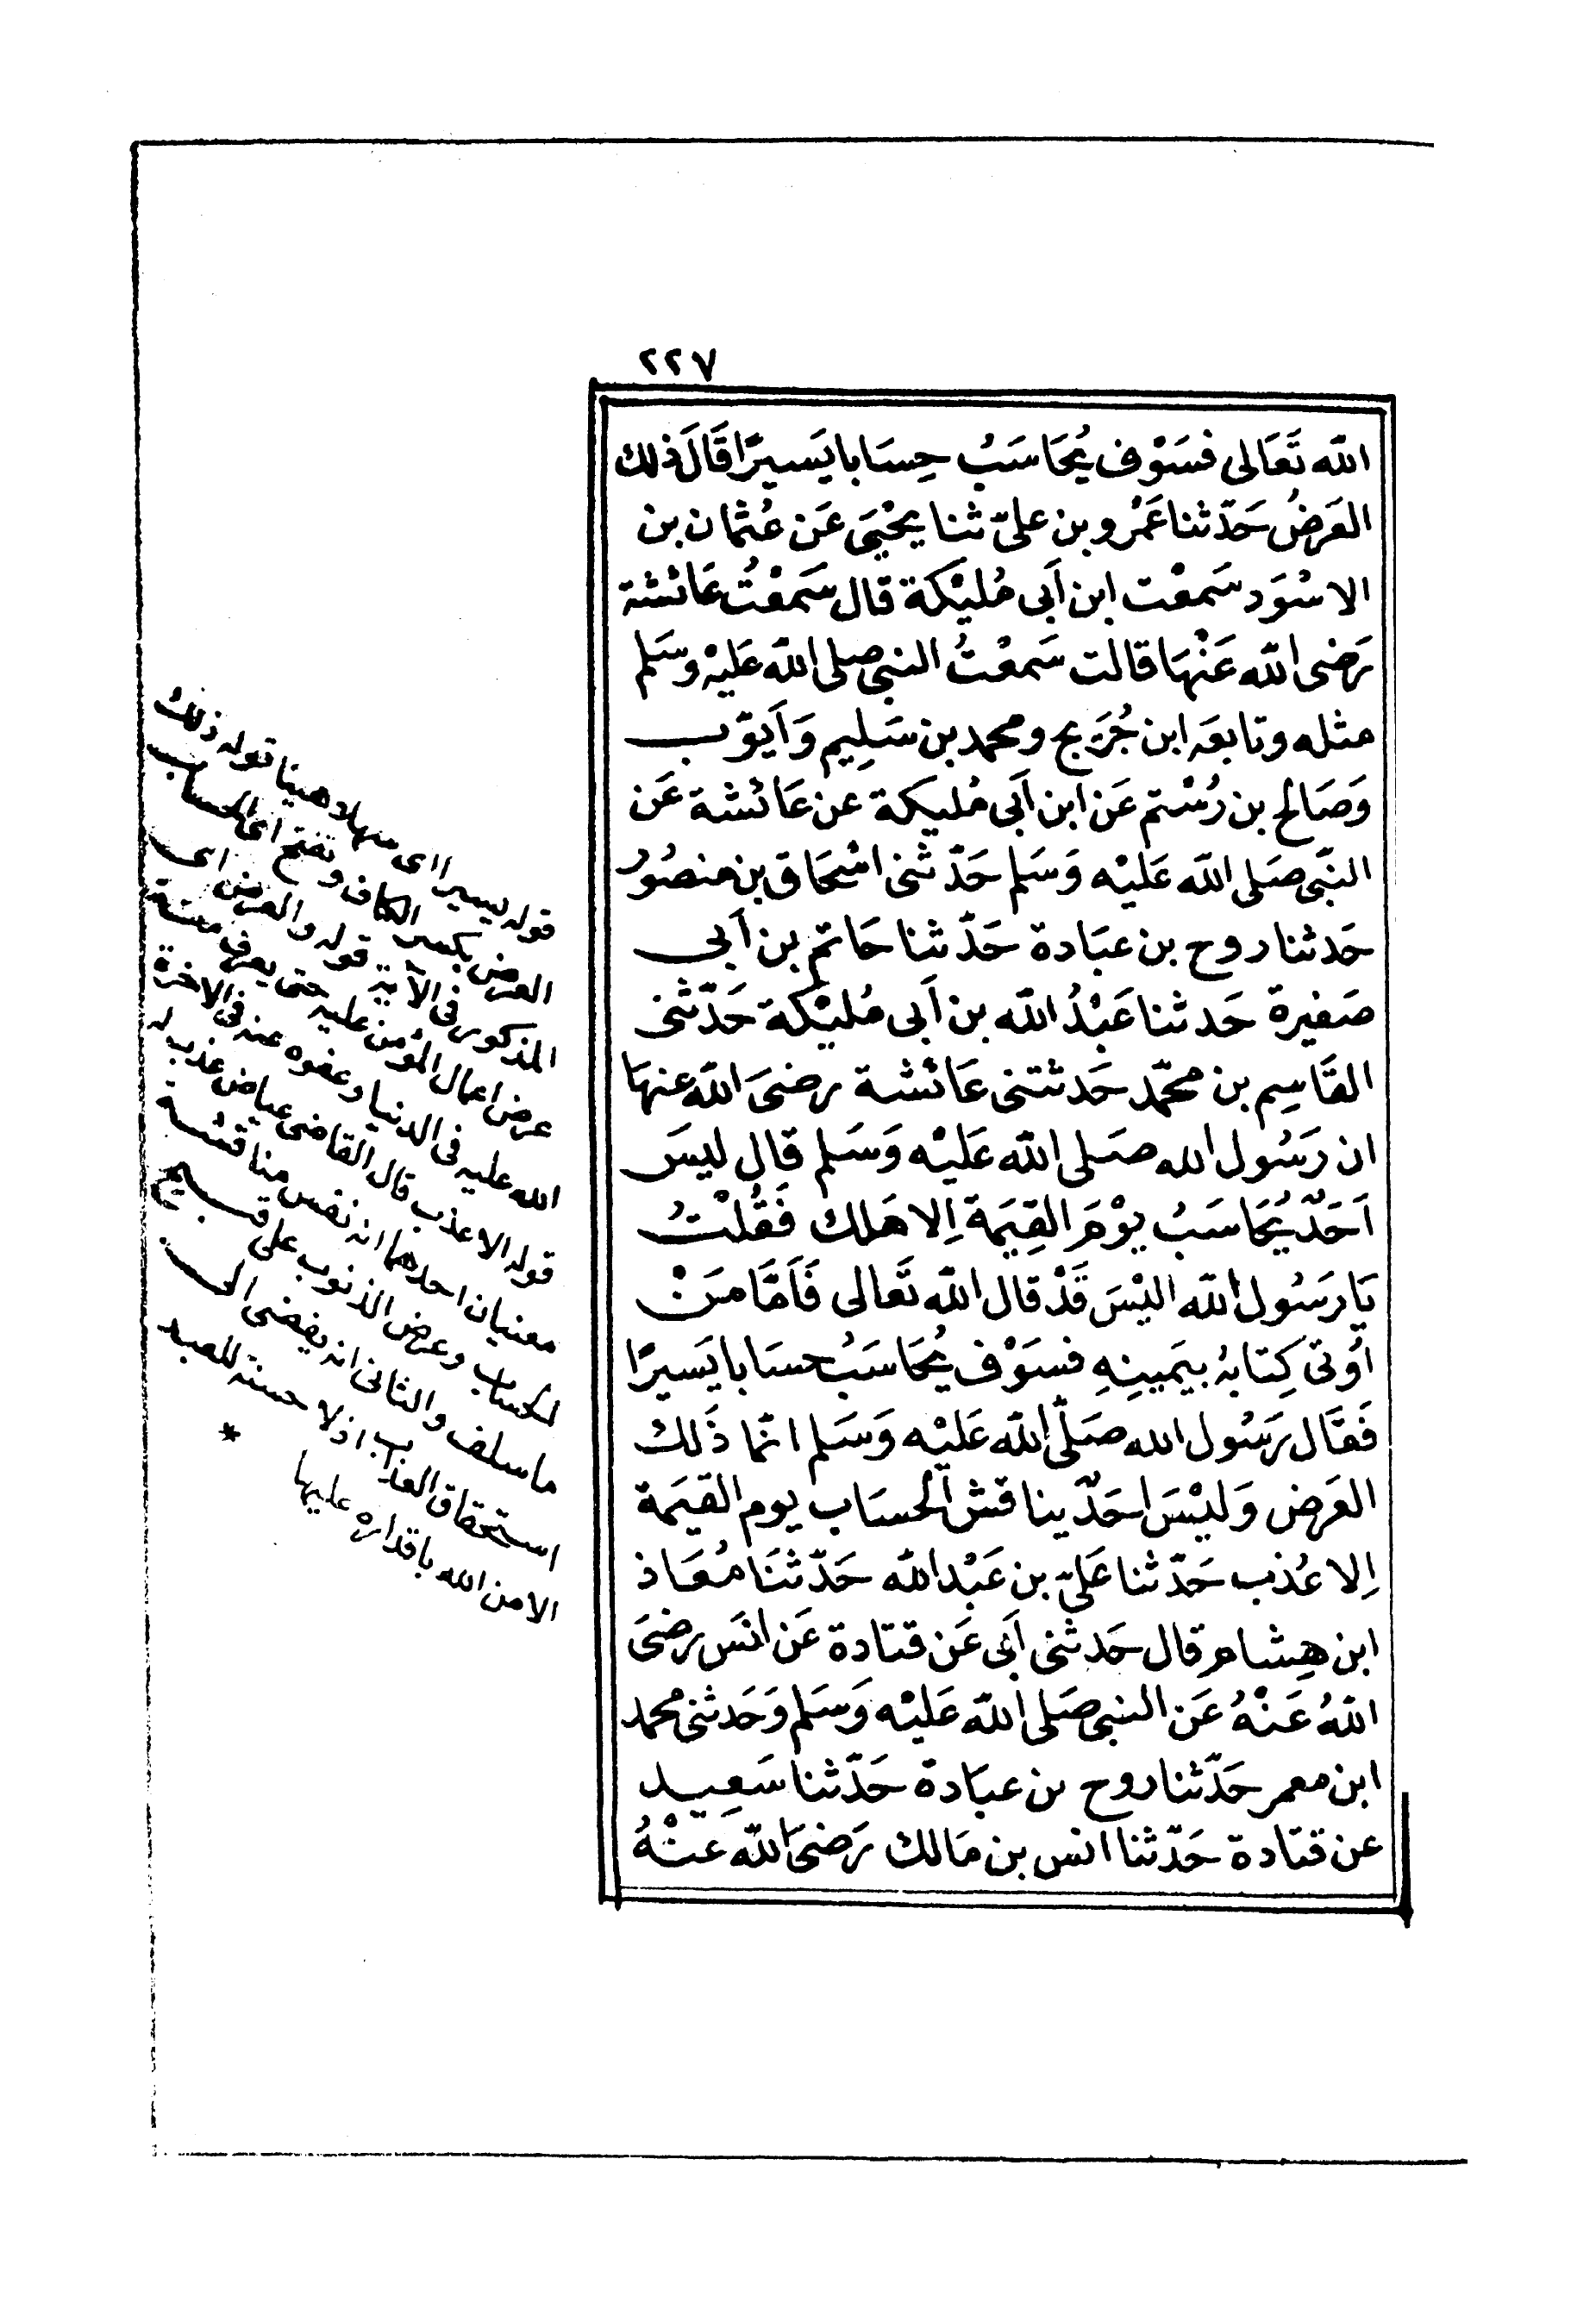 ٢٢٧
الله تَعَالى فسَوْف يُحَاسَبُ حِسَابا يَسيرًا قَالَ ذلك
العَرضُ حَدّثنا عَمْرو بن علىّ ثنا يحْيَى عَن عُثمان بن
الاسْوَد سَمعْت ابن اَبى مُليْكَة قال سَمعْتُ عَائشة
رَضى الله عَنْهَا قالت سَمعْتُ النبى صلى الله عَليْه وسَلم
مثله وتابعَه ابن جُرَيج ومحمد بن سَلِيم وَاَيوّب
وَصَالح بن رُسْتم عَن ابن اَبى مُليكة عن عَائشة عَن
النّبى صَلى الله عَليْه وَسَلم حَدّثنى اسْحَاق بن منصُور
حَدثنا روح بن عبَادة حَدّثنا حَاتم بن اَبى
صَغيرة حَدثنا عَبْدُ الله بن اَبى مُليْكة حَدّثنى
القَاسِم بن محمّد حَدثتنى عَائشة رضىَ الله عنهَا
ان رَسُول الله صَلى الله عَليْه وَسَلم قال ليسَ
اَحَدٌ يُحَاسَبُ يوْمَ القِيَمَة اِلا هَلك فَقُلْتُ
يَا رَسُول الله اليْسَ قَدْ قال الله تَعالى فَاَمَّا مَنْ
اُوتى كِتابهُ بيَمينِهِ فسَوْف يُحَاسَبُ حسَابا يَسيرًا
فَقَال رَسُول الله صَلّى الله عَليْه وَسَلم انّما ذَلك
العَرض وَليْسَ احَدٌ يناقش الحسَاب يوم القيَمَة
اِلا عُذب حَدّثنا عَلىّ بن عَبْد الله حَدّثنَا مُعَاذ
ابن هِشام قال حَدثنى اَبى عَن قتادة عَن انَس رضىَ
اللهُ عَنْهُ عَن النبى صَلى الله عَليْه وَسَلم وَحَدثنى محمد
ابن معمر حَدّثنا روح بن عبَادة حَدّثنا سَعِيد
عن قتَادة حَدّثنا انس بن مَالك رَضىَ الله عنْهُ
قوله يسيرا اى سهلا هينا قوله ذلك
العرض بكسر الكاف وتفتح اى الحساب
المذكور فى الآية قوله والعرض اى
عرض اعمال المؤمن عليه حتى يعرف منة
الله عليه فى الدنيا وعفوه عنه فى الاخرة
قوله الا عذب قال القاضى عياض عذب له
معنيان احدهما انه نفس مناقشة
الحساب وعرض الذنوب على قبيح
ما سلف والثانى انه يفضى الى
استحقاق العذاب اذ لا حسنة للعبد
الا من الله باقداره عليها
*